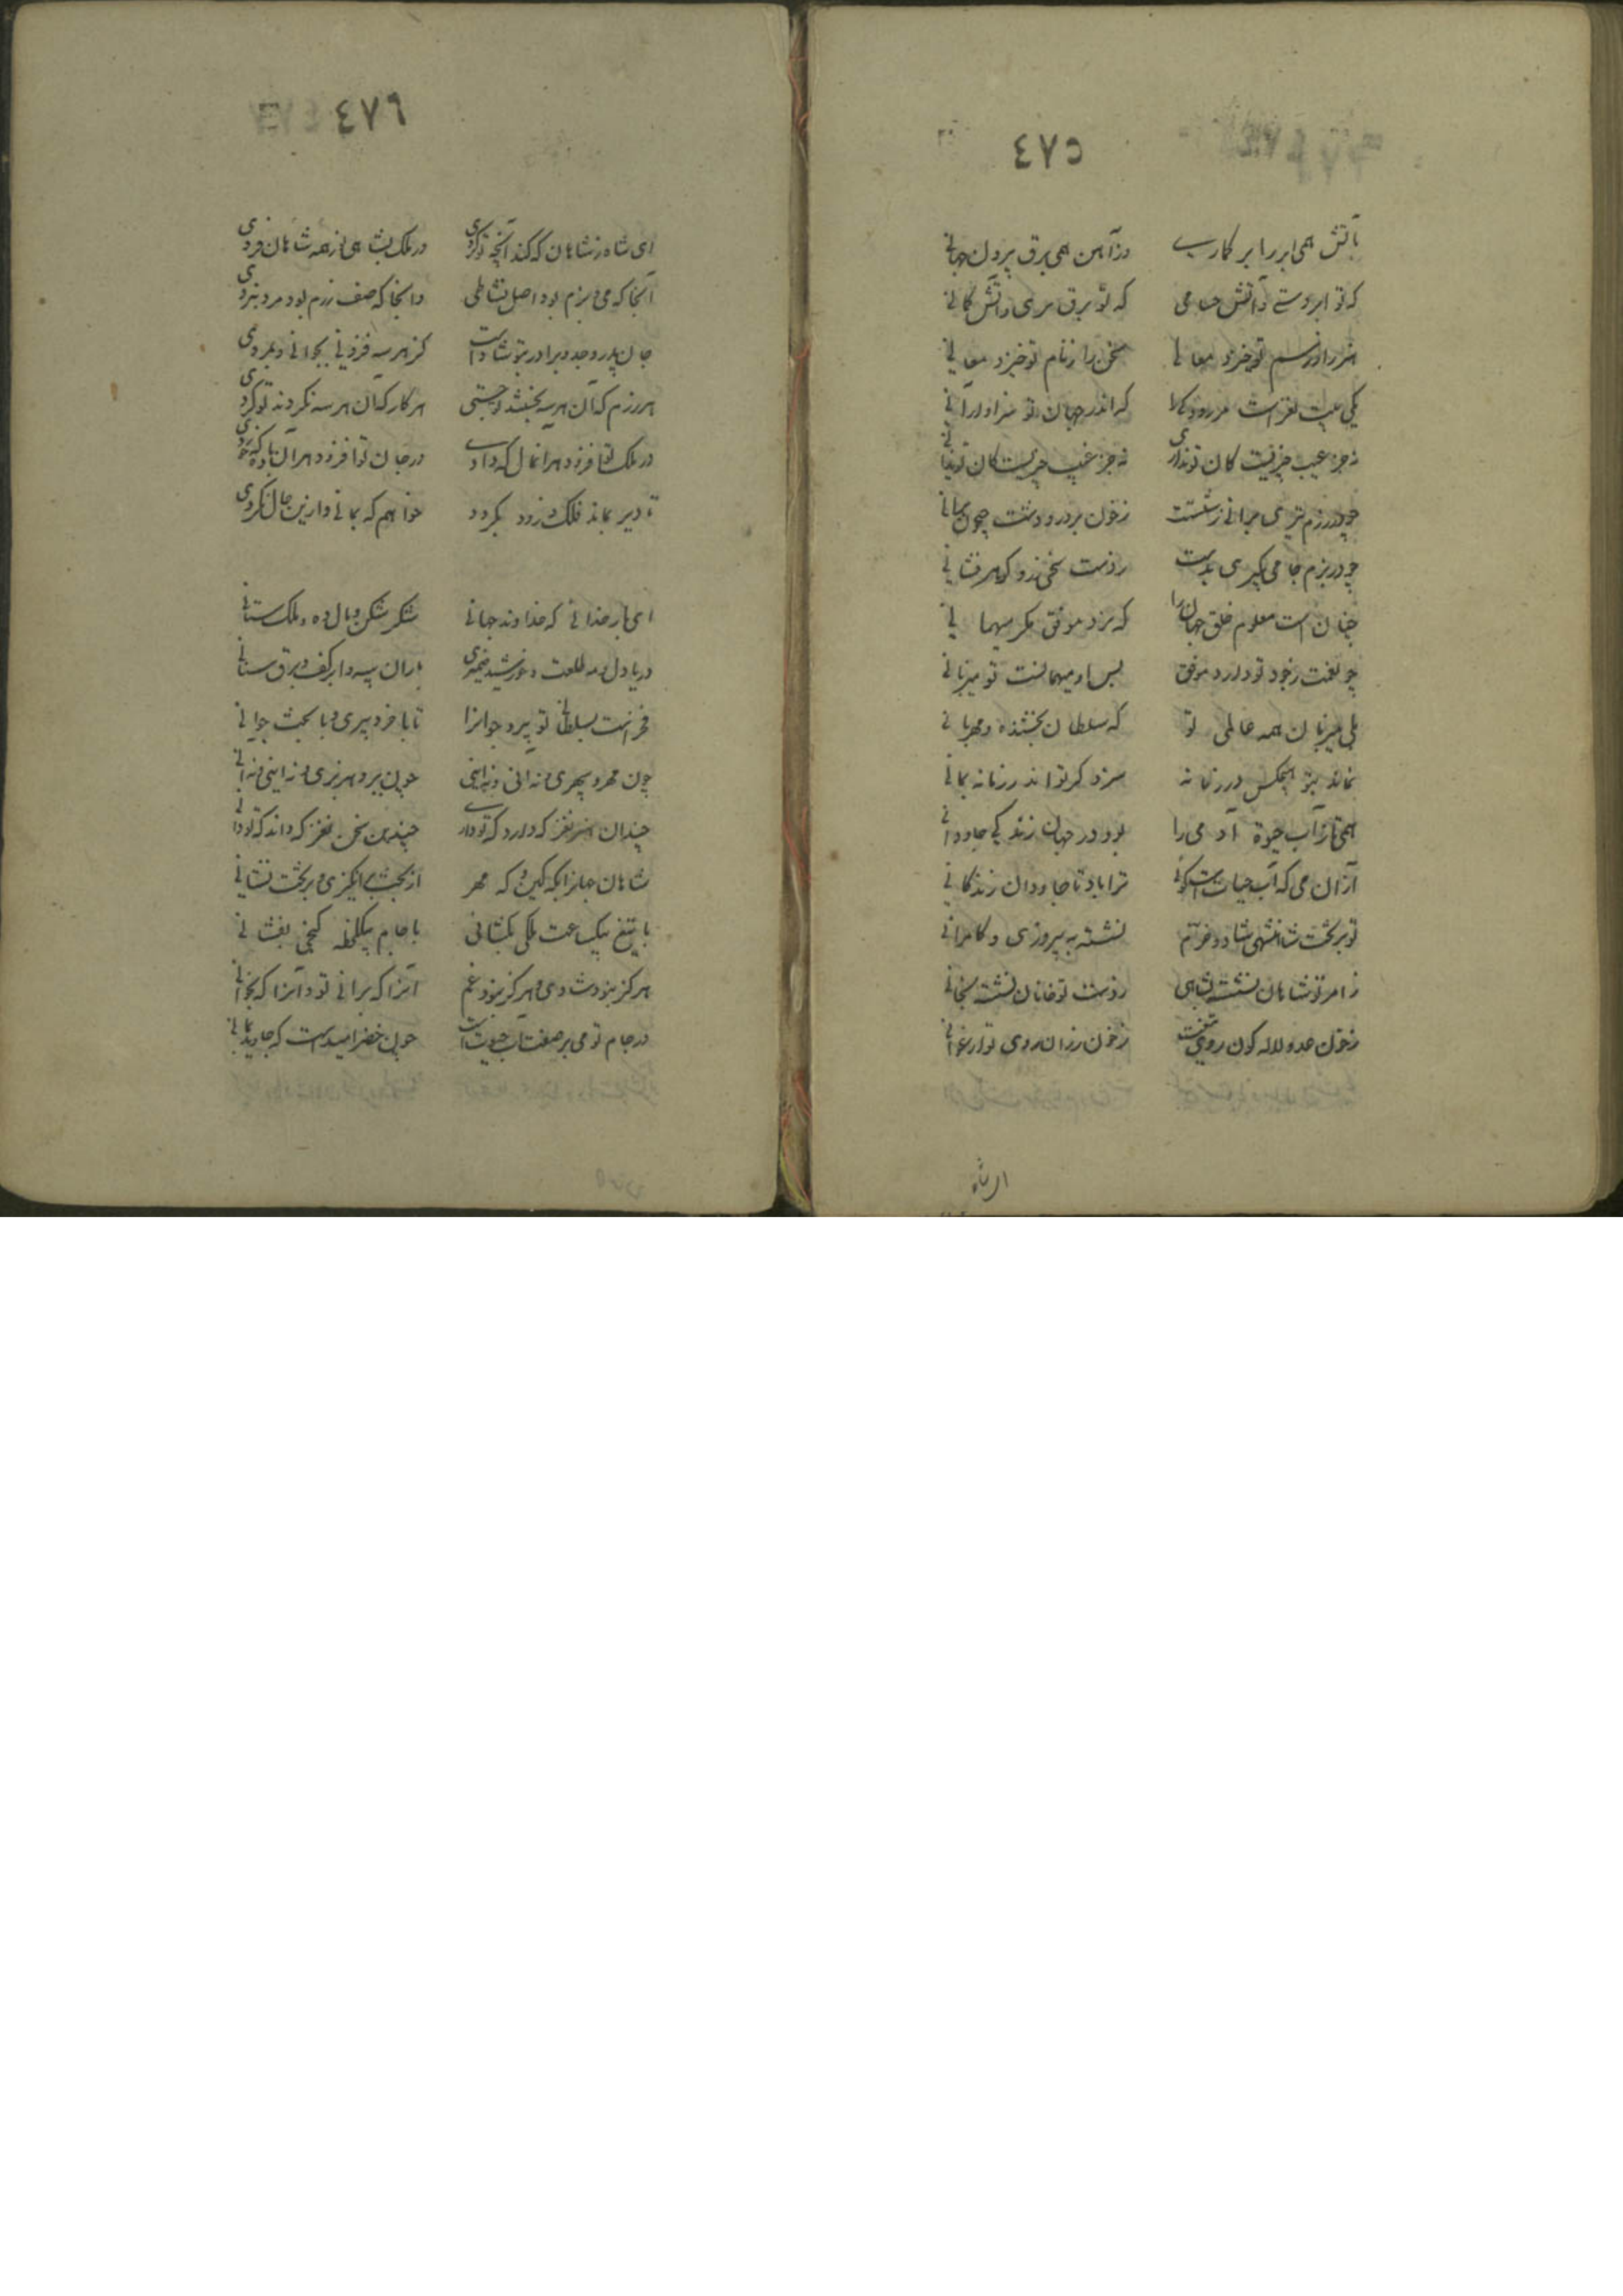 ٤٧٥
بآتش همی ابر را بر کمارے وزآهن همی برق پرون جهانے
که تو ابر دستے وآتش حسامی که تو برق سری وآتش کمانے
هنر را ورسم تو خیزد معانی سخن را زنام تو خیزد معانی
یکی بیت نغز است که اندر جهان تو سزاوار آنی
نه جز عیب چیزیست کان تو نداری نه جز غیب چیزیست کان تو ندانی
چو در رزم تیری برانی زشستت زخون بر در و دشت جیحون برانی
چو در بزم جامی بگیری بدست زدست سخی زر و گوهر فشانی
چنان است معلوم خلق جهان را که نزد موفق مگر میهمانی
چو نعمت زجود تو دارد موفق پس او میهمانست تو میزبانی
بلی میزبان همه عالمی تو که سلطان بخشنده و مهربانی
نماند بتو هیچکس در زمانه سزد گر تو اندر زمانه بمانی
همی تا زآب حیوة آدمی را بود در جهان زندگی جاودانی
ازان می که آب حیات است گوئی ترا باد تا جاودان زندگانی
تو بر تخت شاهنشهی شاد و خرم نشسته به پیروزی و کامرانی
ز امر تو شاهان نشسته بشاهی زدست تو خانان نشسته بخانی
زخون عدو لاله گون روی تیغت زخون رزان روی تو ارغوانی
ای شاه
٤٧٦
ای شاه زشاهان که کند آنچه تو کردی در ملک بشاهی از همه شاهان فردی
آنجا که می و بزم بود اصل نشاطی وانجا که صف رزم بود مرد نبردی
جان پدر و جد و برادر بتو شاد است کز هر سه فزونی بجوانی و بمردی
هر رزم که آن هر سه بجستند تو جستی هر کار که آن هر سه نکردند تو کردی
در ملک تو افزود هر آنمال که دادے در جان تو افزود هر آن باده که خوردی
تا دیر بماند فلک و زود بگردد خواهم که بمانی و ازین حال نگردی
ای بار خدائی که خداوند جهانی لشکر شکن و مال ده و ملک ستانی
دریا دل و مه طلعت و خورشید ضمیری باران سپه و ابر کف و برق سنانی
فخر است بسلطانی تو پیر و جوانرا تا با خرد پیری و با بخت جوانی
چون مهر و سپهری و نه آنی و نه اینی چون ببر و هزبری و نه اینی و نه آنی
چندان هنر نغز که دارد که تو دارے چندین سخن نغز که داند که تو دانی
شاهان جهانرا بگه کین و گه مهر از تخت برانگیزی و بر تخت نشانی
با تیغ بیکساعت ملکی بگشائی با جام بیکلحظه گنجی بفشانی
هرگز نبود شادی و هرگز نبود غم آنرا که برانی تو و آنرا که بخوانی
در جام تو می بر صفت آب حیوت است چون خضر امید است که جاوید بمانی